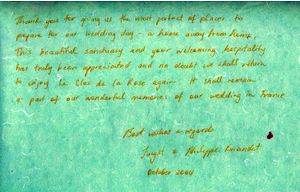 Thank you for giving us the most perfect of places to
prepare for our wedding day - a home away from home.
This beautiful sanctuary and your welcoming hospitality
has truly been appreciated and no doubt we shall return
to enjoy Le Clos de la Rose again. It shall remain
a part of our wonderful memories of our wedding in France
Best wishes & regards
& Philippe
October 2004